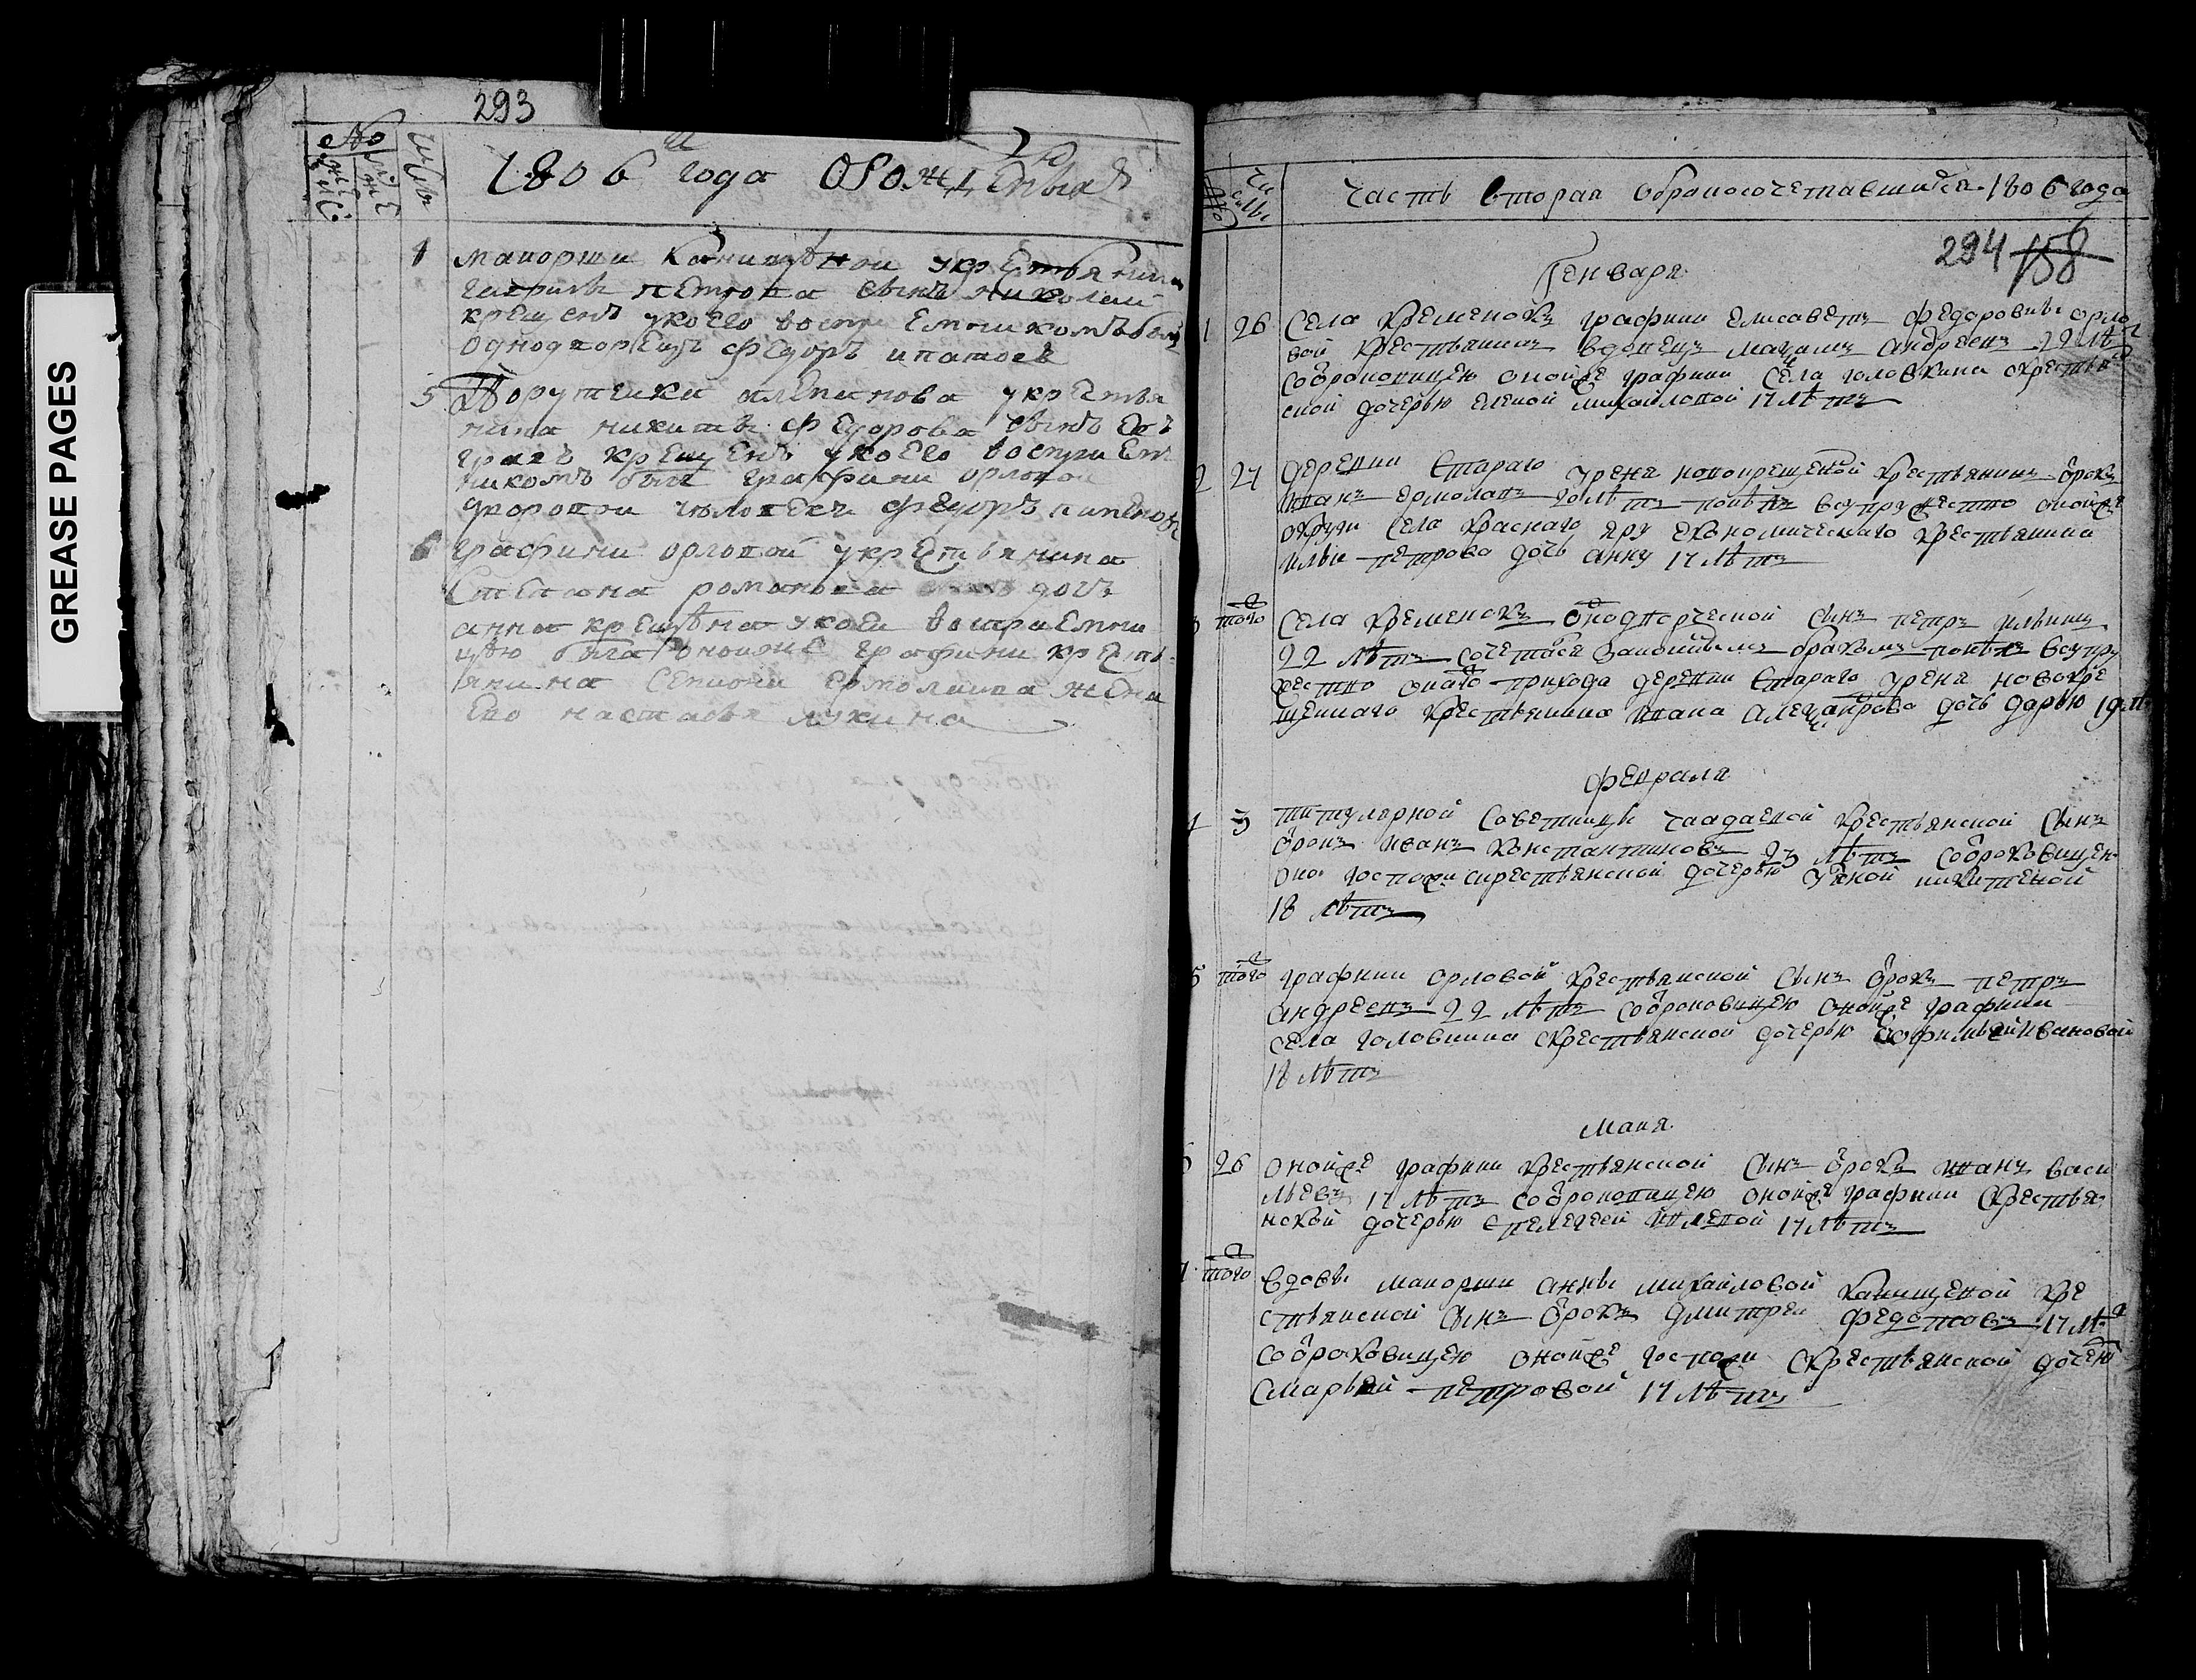 GREASE PAGES
293
№
Число
1806 года О рожденных
1 маиорши Каншвной у крестьянина
гаврилы петрова сынъ николаи
крещенъ у коего восприемникомъ былъ
однодворецъ Федоръ ипатоев
5 Порутчика у крестья
нина никиты Федорова сынъ Евъ
графъ крещенъ у коего восприем
никомъ былъ графини орловой
дворовои человекъ Федоръ
6 графини орловой у крестьянина
Степана романова дочь
анна крещена у коеи восприемни
цею была оноиже графини кресть
янина Семиона ермолаина жена
Его настасья лукина
Числы
Часть вторая о бракосочетавшихся 1806 года
294 158
Генваря
1 26 Села Кременокъ графини Елисаветы Федоровны орло
вой крестьянинъ вдовецъ Максимъ андреевъ 22 лѣт
собраковицею онойже графини Села головкина скрестьян
ской дочерью Еленой михайловой 17 лѣтъ
2 27 деревни Стараго урене новокрещеной крестьянинъ отрокъ
иванъ ермолаевъ 20 лѣтъ поѣлъ в супружество онойже
округи Села краснаго яру экономическаго крестьянина
ильи петрова дочь анну 17 лѣтъ
3 того Села Кременокъ однодворческой сынъ петръ ильинъ
22 лѣтъ сочетася законнымъ бракомъ поѣлъ в супру
жество онаго прихода деревни Стараго урене новокре
щеннаго крестьянина ивана александрова дочь дарью 19 лѣ
Февраля
4 3 титулярной Советницы чаадаевой крестьянской сынъ
отрокъ иванъ константиновъ 23 лѣтъ собраковицею
оной госпожи скрестьянской дочерью никитиной
18 лѣтъ
5 того графини орловой крестьянской сынъ отрокъ петръ
андреевъ 22 лѣтъ собраковицею онойже графини
села головкина скрестьянской дочерью Ефимьей ивановой
18 лѣтъ
Маия
6 26 онойже графини крестьянской сынъ отрокъ иванъ васи
льевъ 17 лѣтъ собраковицею онойже графини скрестья
нской дочерью епелегеей 17 лѣтъ
7 того вдовы маиорши анны михайловой кре
стьянской сынъ отрокъ дмитреи Федотовъ 17 лѣ
собраковицею онойже госпожи скрестьянской дочерью
смарьей петровой 17 лѣтъ